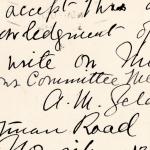 accept this a
knowledgment of
write on M
ons Committee Me
A. M. Gela
tman Road